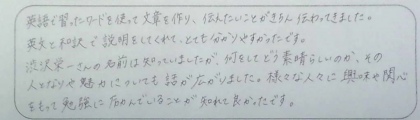 英語で習ったワードを使って文章を作り、伝えたいことがきちんと伝わってきました。
英文と和訳で説明をしてくれて、とても分かりやすかったです。
渋沢栄一さんの名前は知っていましたが、何をしてどう素晴らしいのか、その
人となりや魅力についても語が広がりました。様々な人々に興味や関心
をもって勉強に励んでいることが知れて良かったです。